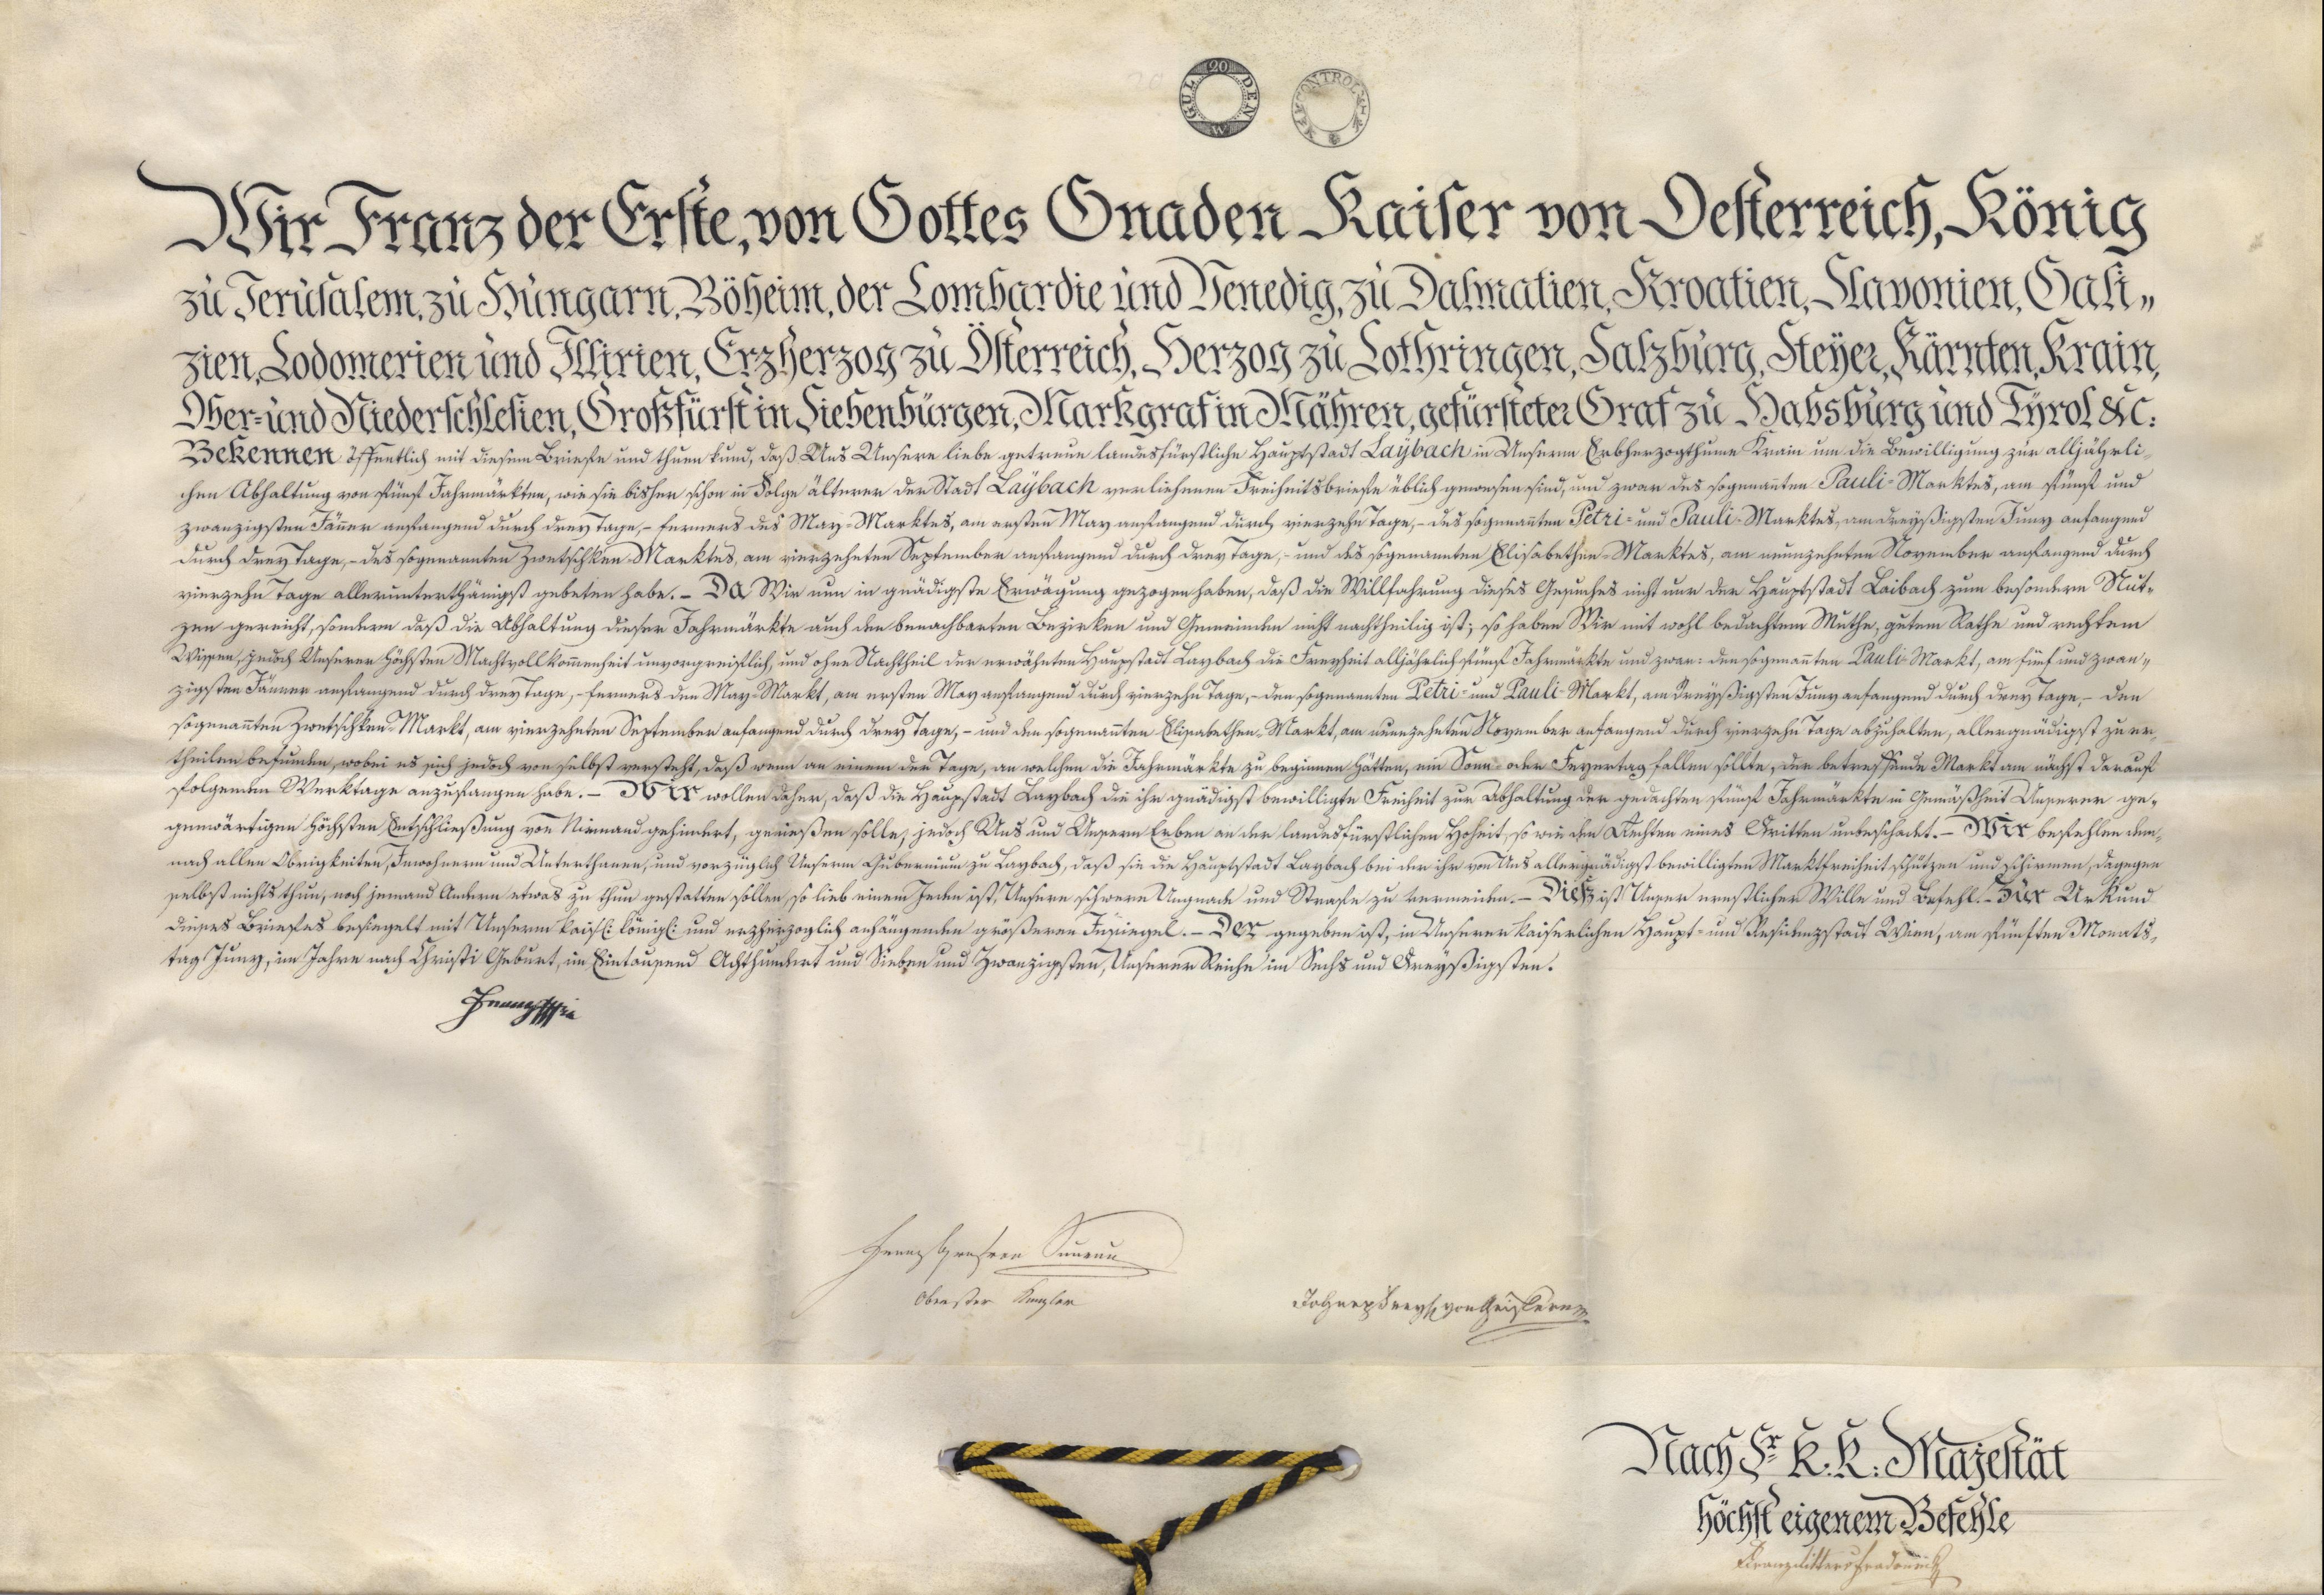 20 GULDEN W
CONTROLE
Wir Franz der Erste, von Gottes Gnaden Kaiser von Oesterreich, König
zu Jerusalem, zu Hungarn, Böheim, der Lombardie und Venedig, zu Dalmatien, Kroatien, Slavonien, Gali„
zien, Lodomerien und Illirien, Erzherzog zu Österreich, Herzog zu Lothringen, Salzburg, Steyer, Kärnten, Krain,
Ober= und Niederschlesien, Großfürst in Siebenbürgen, Markgraf in Mähren, gefürsteter Graf zu Habsburg und Tyrol &c:
Bekennen öffentlich mit diesem Briefe und thuen kund, daß Uns Unsere liebe getreue landesfürstliche Hauptstadt Laybach in Unserm Erbherzogthume Krain um die Bewilligung zur alljährli„
chen Abhaltung von fünf Jahrmärkten, wie sie bisher schon in Folge älterer der Stadt Laybach verliehenen Freiheitsbriefe üblich gewesen sind, und zwar des sogenañten Pauli=Marktes, am fünf und
zwanzigsten Jäñer anfangend durch drey Tage, – ferners des May=Marktes, am ersten May anfangend durch vierzehn Tage, – des sogenañten Petri= und Pauli=Marktes, am dreyßigsten Juny anfangend
durch drey Tage, – des sogenannten Zwetschken=Marktes, am vierzehnten September anfangend durch drey Tage, – und des sogenannten Elisabethen=Marktes, am neunzehnten November anfangend durch
vierzehn Tage allerunterthänigst gebeten habe. – Da Wir nun in gnädigste Erwägung gezogen haben, daß die Willfahrung dieses Gesuches nicht nur der Hauptstadt Laibach zum besondern Nut„
zen gereicht, sondern daß die Abhaltung dieser Jahrmärkte auch den benachbarten Bezirken und Gemeinden nicht nachtheilig ist; so haben Wir mit wohl bedachtem Muthe, gutem Rathe und rechtem
Wissen, jedoch Unserer höchsten Machtvollkom̃enheit unvorgreiflich, und ohne Nachtheil der erwähnten Hauptstadt Laybach die Freyheit alljährlich fünf Jahrmärkte und zwar: den sogenañten Pauli=Markt, am fünf und zwan„
zigsten Jänner anfangend durch drey Tage, – ferners den May=Markt, am ersten May anfangend durch vierzehn Tage, – den sogenannten Petri= und Pauli=Markt, am dreyßigsten Juny anfangend durch drey Tage, – den
sogenañten Zwetschken=Markt, am vierzehnten September anfangend durch drey Tage, – und den sogenannten Elisabethen=Markt, am neunzehnten November anfangend durch vierzehn Tage abzuhalten, allergnädigst zu er„
theilen befunden, wobei es sich jedoch von selbst versteht, daß wenn an einem der Tage, an welchen die Jahrmärkte zu beginnen hätten, ein Sonn= oder Feyertag fallen sollte, der betreffende Markt am nächst darauf
folgenden Werktage anzufangen habe. – Wir wollen daher, daß die Hauptstadt Laybach die ihr gnädigst bewilligte Freiheit zur Abhaltung der gedachten fünf Jahrmärkte in Gemäßheit Unserer ge„
genwärtigen höchsten Entschließung von Niemand gehindert, genießen solle, jedoch Uns und Unsern Erben an der landesfürstlichen Hoheit, so wie den Rechten eines Dritten unbeschadet. – Wir befehlen dem„
nach allen Obrigkeiten, Inwohnern und Unterthanen, und vorzüglich Unserm Gubernium zu Laybach, daß sie die Hauptstadt Laybach bei der ihr von Uns allergnädigst bewilligten Marktfreiheit schützen und schirmen, dagegen
selbst nichts thun, noch jemand Andern etwas zu thun gestatten sollen, so lieb einem Jeden ist, Unsere schwere Ungnade und Strafe zu vermeiden. – Dieß ist Unser ernstlicher Wille und Befehl. – Zur Urkund
dieses Briefes besiegelt mit Unserm kaisl: königl: und erzherzoglich anhängenden größeren Insiegel. – Der gegeben ist, in Unserer kaiserlichen Haupt= und Residenzstadt Wien, am fünften Monats„
tag Juny, im Jahre nach Christi Geburt, im Eintausend Achthundert und Sieben und Zwanzigsten, Unserer Reiche im Sechs und Dreyßigsten.
Franz
Franz Graf von Saurau
Oberster Kanzler
Nach Sr. K. K. Majestät
höchst eigenem Befehle